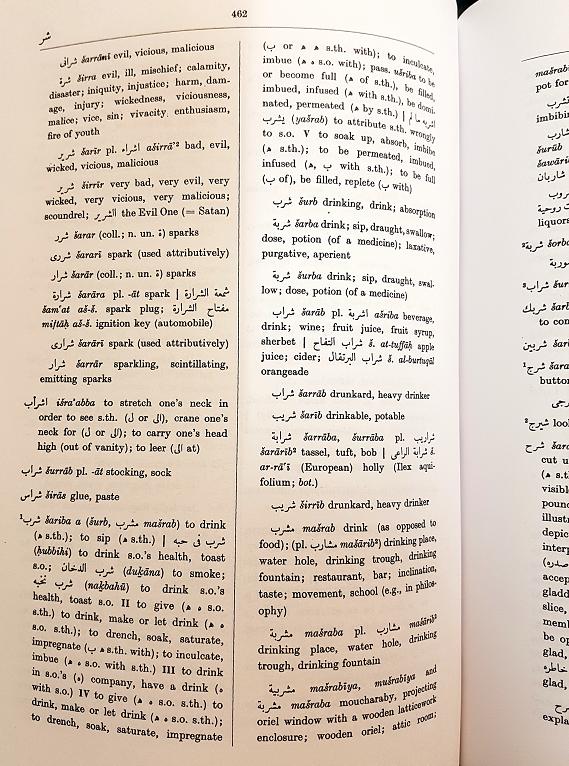 462
شر
شرانى šarrānī evil, vicious, malicious
شرة širra evil, ill, mischief; calamity,
disaster; iniquity, injustice; harm, dam-
age, injury; wickedness, viciousness,
malice; vice, sin; vivacity, enthusiasm,
fire of youth
شرير šarīr pl. اشراء aširrā’² bad, evil,
wicked, vicious, malicious
شرير širrīr very bad, very evil, very
wicked, very vicious, very malicious;
scoundrel; الشرير the Evil One (= Satan)
شرر šarar (coll.; n. un. ة) sparks
شررى šararī spark (used attributively)
شرار šarār (coll.; n. un. ة) sparks
شرارة šarāra pl. -āt spark | شمعة الشرارة
šam‘at aš-š. spark plug; مفتاح الشرارة
miftāḥ aš-š. ignition key (automobile)
شرارى šarārī spark (used attributively)
شرار šarrār sparkling, scintillating,
emitting sparks
اشرأب išra’abba to stretch one's neck in
order to see s.th. (ل or الى), crane one's
neck for (ل or الى); to carry one's head
high (out of vanity); to leer (الى at)
شراب šurrāb pl. -āt stocking, sock
شراس širās glue, paste
¹شرب šariba a (šurb, مشرب mašrab) to drink
(ه s.th.); to sip (ه s.th.) | شرب فى حبه
(ḥubbihī) to drink s.o.'s health, toast
s.o.; شرب الدخان (duḵāna) to smoke;
شرب نخبه (naḵbahū) to drink s.o.'s
health, toast s.o. II to give (ه ه s.o.
s.th.) to drink, make or let drink (ه ه
s.o. s.th.); to drench, soak, saturate,
impregnate (ب ه s.th. with); to inculcate,
imbue (ه ه s.o. with s.th.) III to drink
in s.o.'s (ه) company, have a drink (ه
with s.o.) IV to give (ه ه s.o. s.th.) to
drink, make or let drink (ه ه s.o. s.th.);
to drench, soak, saturate, impregnate
(ب or ه ه s.th. with); to inculcate,
imbue (ه ه s.o. with); pass. ušriba to be
or become full (ه of s.th.), be filled,
imbued, infused (ه with s.th.), be domi-
nated, permeated (ه by s.th.) | اشربه ما لم
يشرب (yašrab) to attribute s.th. wrongly
to s.o. V to soak up, absorb, imbibe
(ه s.th.); to be permeated, imbued,
infused (ه, ب with s.th.); to be full
(ب of), be filled, replete (ب with)
شرب šurb drinking, drink; absorption
شربة šarba drink; sip, draught, swallow;
dose, potion (of a medicine); laxative,
purgative, aperient
شربة šurba drink; sip, draught, swal-
low; dose, potion (of a medicine)
شراب šarāb pl. اشربة ašriba beverage,
drink; wine; fruit juice, fruit syrup,
sherbet | شراب التفاح š. at-tuffāḥ apple
juice; cider; شراب البرتقال š. al-burtuqāl
orangeade
شراب šarrāb drunkard, heavy drinker
شريب šarīb drinkable, potable
شرابة šarrāba, šurrāba pl. شراريب
šarārīb² tassel, tuft, bob | شرابة الراعى š.
ar-rā‘ī (European) holly (Ilex aqui-
folium; bot.)
شريب širrīb drunkard, heavy drinker
مشرب mašrab drink (as opposed to
food); (pl. مشارب mašārib²) drinking place,
water hole, drinking trough, drinking
fountain; restaurant, bar; inclination,
taste; movement, school (e.g., in philos-
ophy)
مشربة mašraba pl. مشارب mašārib²
drinking place, water hole, drinking
trough, drinking fountain
مشربية mašrabīya, mušrabīya and
مشربة mašraba moucharaby, projecting
oriel window with a wooden latticework
enclosure; wooden oriel; attic room;
mašrab
pot for
imbibin
šurūb
šawāri
شاربان
liquors
²شربة šorba
²شراب
شريك šarbak
to con
شربين
¹شرج šara
button
²شيرج
cut u
(ه s.t
visible
pound
illust
depic
interp
صدره)
accep
gladd
slice,
memb
be op
glad,
خاطره
glad,
expla